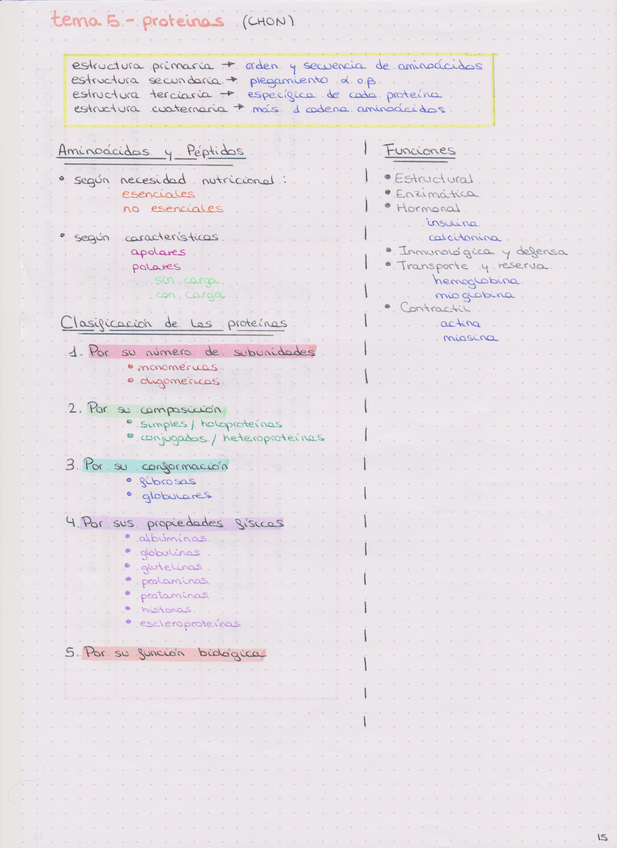 tema 5 - proteinas (CHON)
estructura primaria → orden y secuencia de aminoácidos
estructura secundaria → plegamiento α o β
estructura terciaria → específica de cada proteína
estructura cuaternaria → más 1 cadena aminoácidos
Aminoácidos y Péptidos
• según necesidad nutricional:
esenciales
no esenciales
• según características
apolares
polares
sin carga
con carga
Clasificación de las proteínas
1. Por su número de subunidades
• monoméricas
• oligoméricas
2. Por su composición
• simples / holoproteínas
• conjugados / heteroproteínas
3. Por su conformación
• fibrosas
• globulares
4. Por sus propiedades físicas
• albúminas
• globulinas
• glutelinas
• prolaminas
• protaminas
• histonas
• escleroproteínas
5. Por su función biológica
Funciones
• Estructural
• Enzimática
• Hormonal
insulina
calcitonina
• Inmunológica y defensa
• Transporte y reserva
hemoglobina
mioglobina
• Contractil
actina
miosina
15